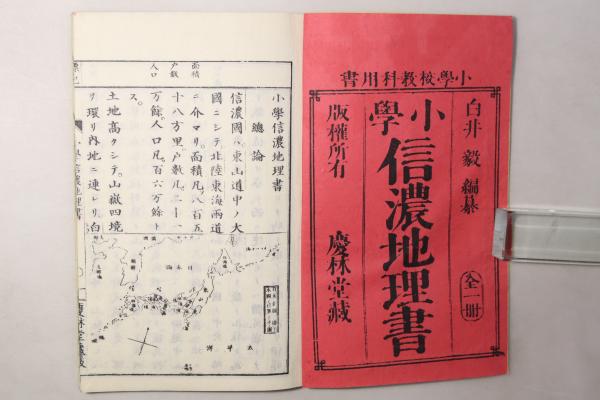 小學校教科用書
白井毅編纂
全一冊
小學信濃地理書
版權所有
慶林堂藏
小學信濃地理書
總論
信濃國ハ東山道中ノ大
國ニシテ北陸東海兩道
ニ介マリ面積凡八百五
十八方里戸數凡二十一
万餘人口凡百六万餘ト
ス
土地高クシテ山嶽四境
ヲ環リ內地ニ連レリ白
面積
戸數
人口
日本海
太平洋
小學信濃地理書
一
慶林堂藏版